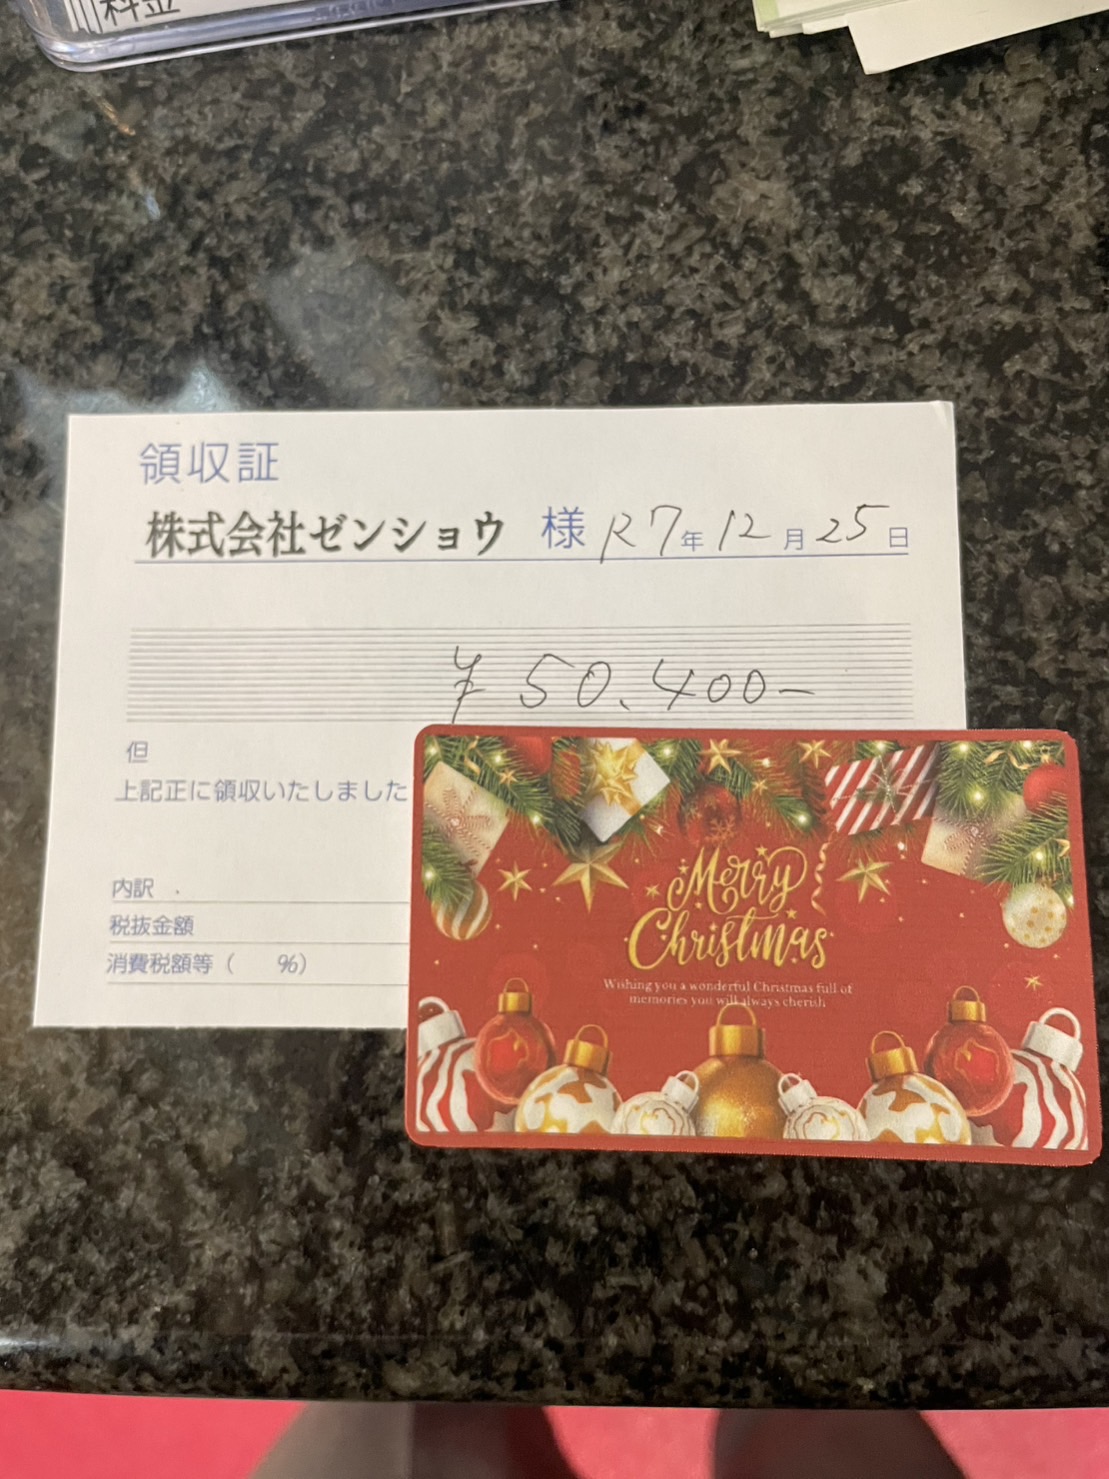 料金
領収証
株式会社ゼンショウ 様 R7年12月25日
¥50,400-
但
上記正に領収いたしました
内訳
税抜金額
消費税額等( %)
Merry
Christmas
Wishing you a wonderful Christmas full of
memories you will always cherish